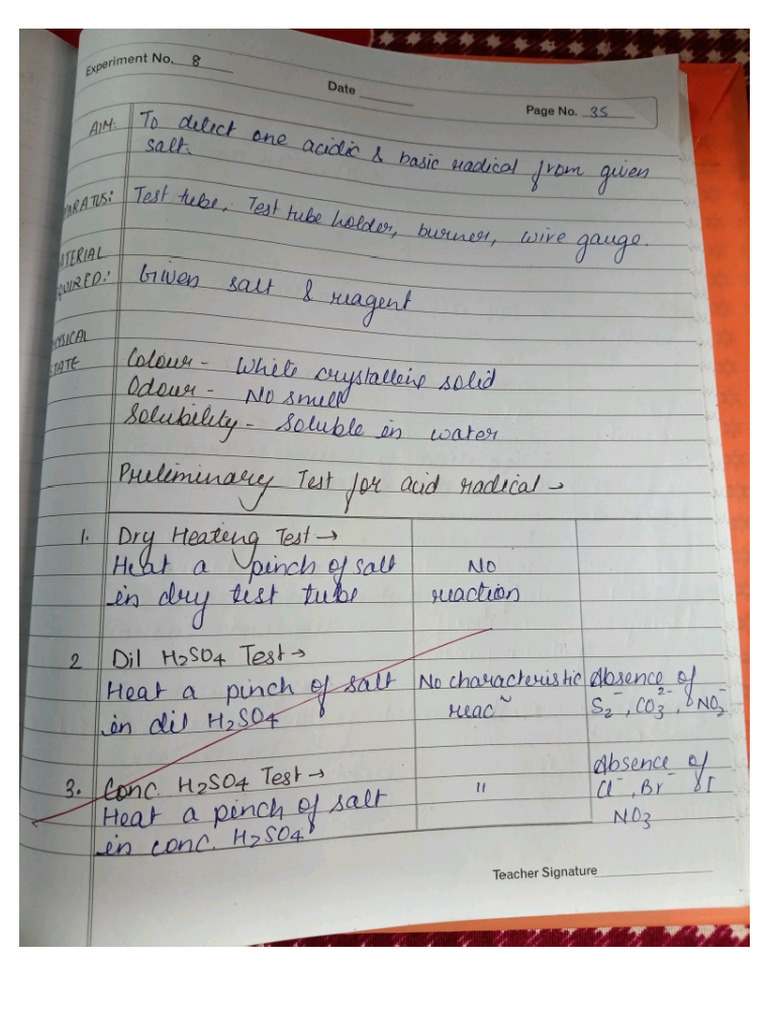 Experiment No. 8
Date
Page No. 35
AIM: To detect one acidic & basic radical from given
salt.
PARATUS: Test tube, Test tube holder, burner, wire gauge.
ATERIAL
QUIRED: Given salt & reagent
HYSICAL
STATE
Colour - White crystalleine solid
Odour - No smell
Solubility - Soluble in water
Preliminary Test for acid radical →
1. Dry Heating Test →
Heat a pinch of salt No
in dry test tube reaction
2 Dil H2SO4 Test →
Heat a pinch of salt No characteristic Absence of
in dil H2SO4 reac~ S2-, CO3 2-, NO2-
3. Conc. H2SO4 Test → Absence of
Heat a pinch of salt " Cl-, Br-
in conc. H2SO4 NO3
Teacher Signature